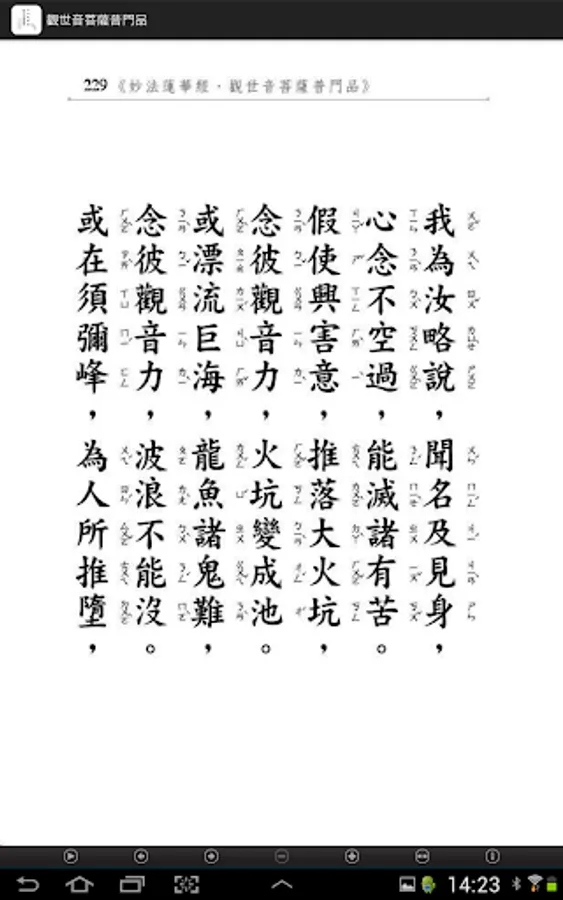 觀世音菩薩普門品
229《妙法蓮華經·觀世音菩薩普門品》
我為汝略說，聞名及見身，
心念不空過，能滅諸有苦。
假使興害意，推落大火坑，
念彼觀音力，火坑變成池。
或漂流巨海，龍魚諸鬼難，
念彼觀音力，波浪不能沒。
或在須彌峰，為人所推墮，
14:23